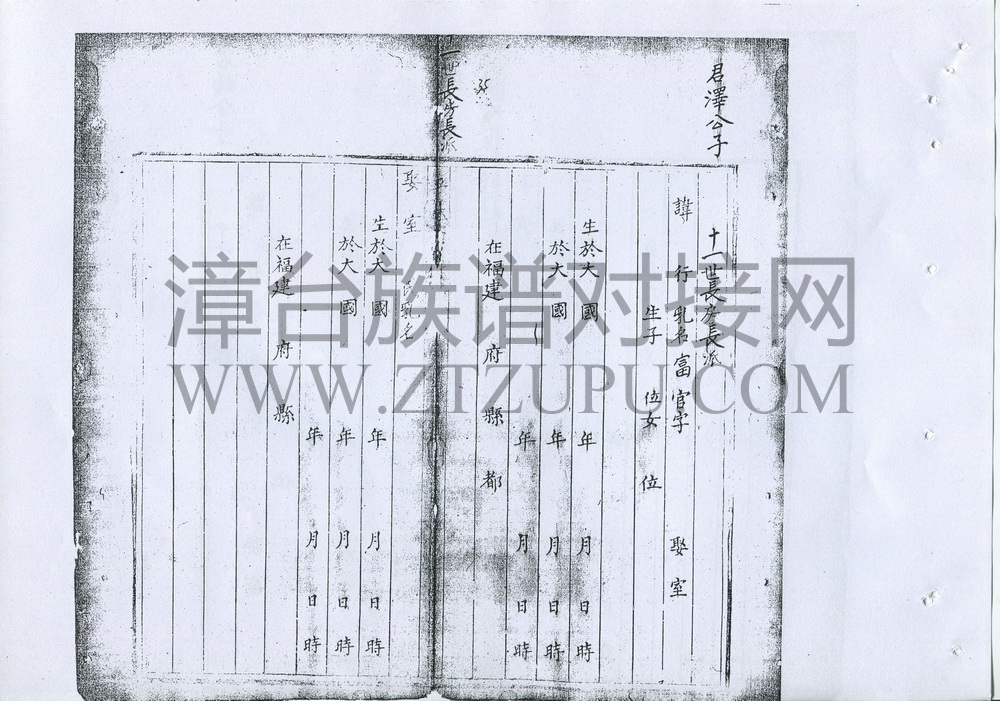 君澤公子
十一世長房長派
諱 行 乳名富 官字 娶室
生子 位女 位
生於大 國 年 月 日 時
於大 國 年 月 日 時
年 月 日 時
在福建 府 縣 都
一世長房長派
娶室 乳名
生於大 國 年 月 日 時
於大 國 年 月 日 時
年 月 日 時
在福建 府 縣
漳台族谱对接网
WWW.ZTZUPU.COM